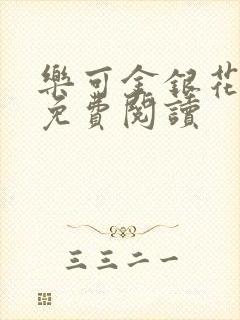 樂可金銀花
免費閱讀
三三二一